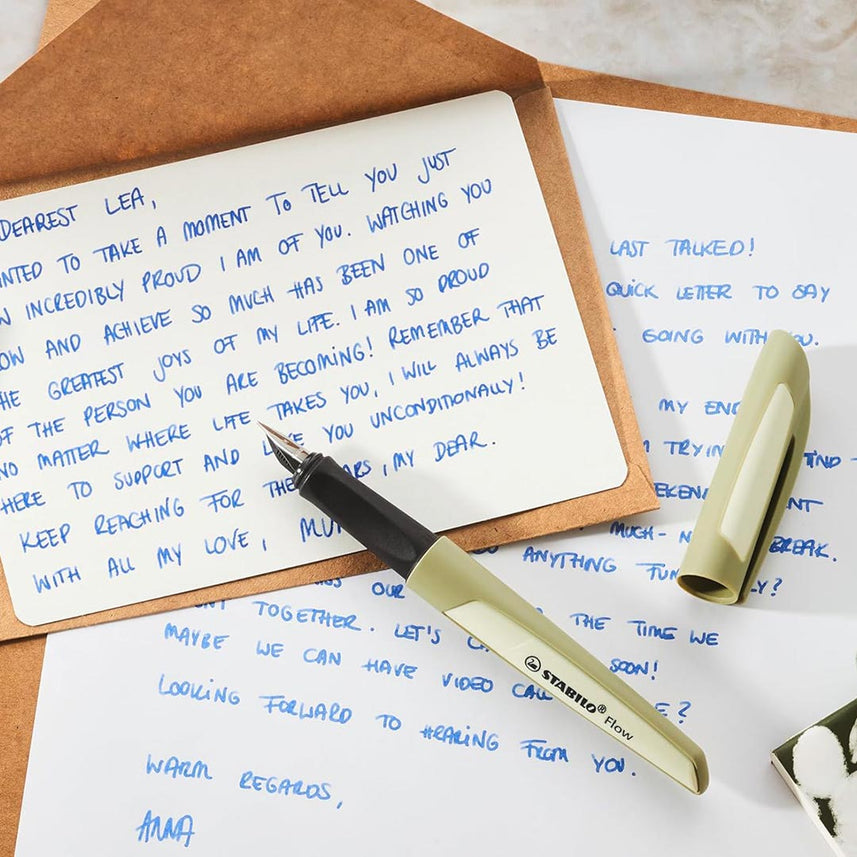 DEAREST LEA,
NTED TO TAKE A MOMENT TO TELL YOU JUST
W INCREDIBLY PROUD I AM OF YOU. WATCHING YOU
OW AND ACHIEVE SO MUCH HAS BEEN ONE OF
HE GREATEST JOYS OF MY LIFE. I AM SO PROUD
OF THE PERSON YOU ARE BECOMING! REMEMBER THAT
NO MATTER WHERE LIFE TAKES YOU, I WILL ALWAYS BE
HERE TO SUPPORT AND YOU UNCONDITIONALLY!
KEEP REACHING FOR THE ARS, MY DEAR.
WITH ALL MY LOVE, MU
LAST TALKED!
QUICK LETTER TO SAY
GOING WITH OU.
MY
TRYIN
EKEN NT
MUCH- BREAK.
ANYTHING FUN Y?
SS OUR
NT TOGETHER. LET'S THE TIME WE
MAYBE WE CAN HAVE VIDEO CALL SOON!
LOOKING FORWARD TO HEARING FROM YOU. E?
WARM REGARDS,
ANNA
STABILO® Flow